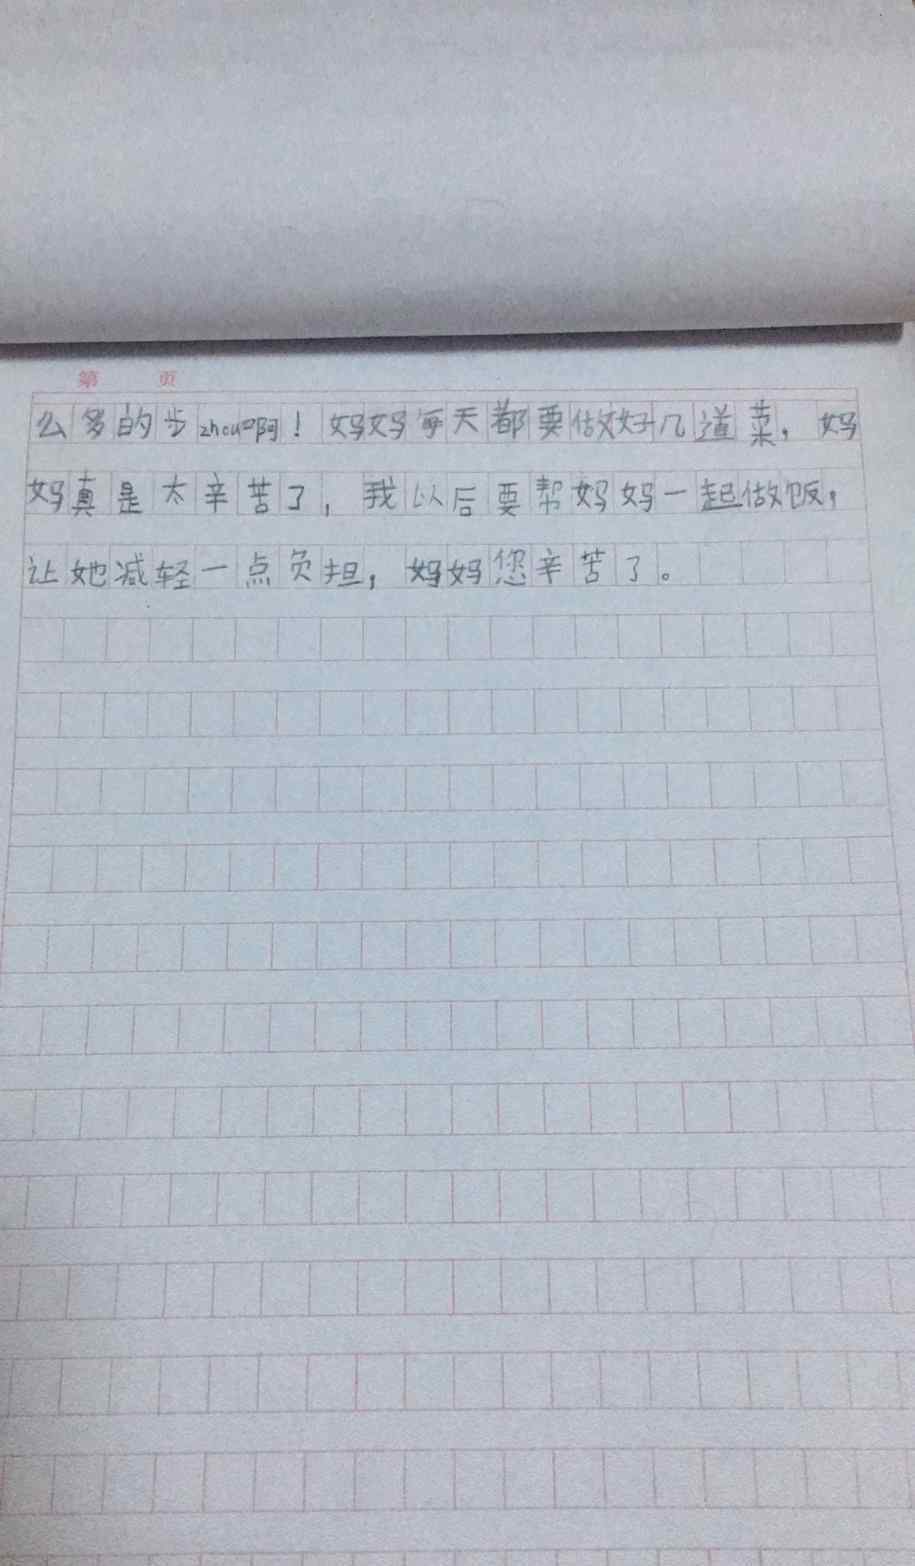 第 页
么多的步zhou啊！妈妈每天都要做好几道菜，妈
妈真是太辛苦了，我以后要帮妈妈一起做饭，
让她减轻一点负担，妈妈您辛苦了。